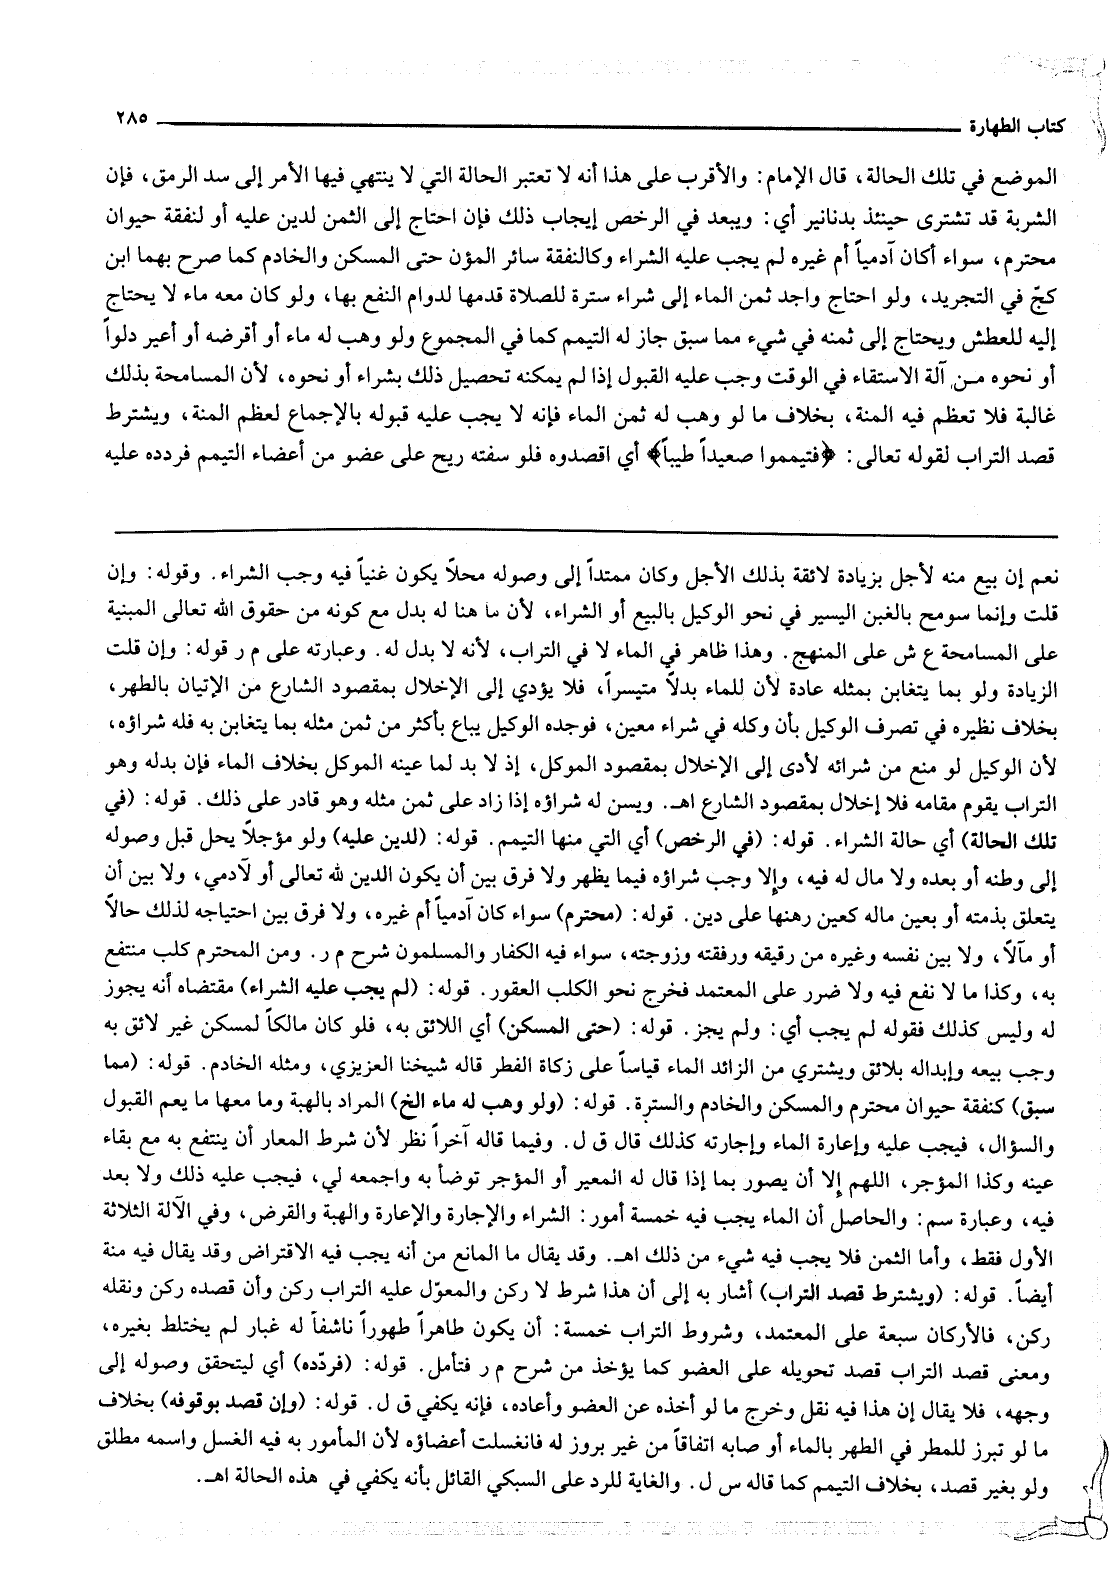 كتاب الطهارة ٢٨٥
الموضع في تلك الحالة، قال الإمام: والأقرب على هذا أنه لا تعتبر الحالة التي لا ينتهي فيها الأمر إلى سد الرمق، فإن
الشربة قد تشترى حينئذ بدنانير أي: ويبعد في الرخص إيجاب ذلك فإن احتاج إلى الثمن لدين عليه أو لنفقة حيوان
محترم، سواء أكان آدمياً أم غيره لم يجب عليه الشراء وكالنفقة سائر المؤن حتى المسكن والخادم كما صرح بهما ابن
كجّ في التجريد، ولو احتاج واجد ثمن الماء إلى شراء سترة للصلاة قدمها لدوام النفع بها، ولو كان معه ماء لا يحتاج
إليه للعطش ويحتاج إلى ثمنه في شيء مما سبق جاز له التيمم كما في المجموع ولو وهب له ماء أو أقرضه أو أعير دلواً
أو نحوه من آلة الاستقاء في الوقت وجب عليه القبول إذا لم يمكنه تحصيل ذلك بشراء أو نحوه، لأن المسامحة بذلك
غالبة فلا تعظم فيه المنة، بخلاف ما لو وهب له ثمن الماء فإنه لا يجب عليه قبوله بالإجماع لعظم المنة، ويشترط
قصد التراب لقوله تعالى: ﴿فتيمموا صعيداً طيباً﴾ أي اقصدوه فلو سفته ريح على عضو من أعضاء التيمم فردده عليه
نعم إن بيع منه لأجل بزيادة لائقة بذلك الأجل وكان ممتداً إلى وصوله محلاً يكون غنياً فيه وجب الشراء. وقوله: وإن
قلت وإنما سومح بالغبن اليسير في نحو الوكيل بالبيع أو الشراء، لأن ما هنا له بدل مع كونه من حقوق الله تعالى المبنية
على المسامحة ع ش على المنهج. وهذا ظاهر في الماء لا في التراب، لأنه لا بدل له. وعبارته على م ر قوله: وإن قلت
الزيادة ولو بما يتغابن بمثله عادة لأن للماء بدلاً متيسراً، فلا يؤدي إلى الإخلال بمقصود الشارع من الإتيان بالطهر،
بخلاف نظيره في تصرف الوكيل بأن وكله في شراء معين، فوجده الوكيل يباع بأكثر من ثمن مثله بما يتغابن به فله شراؤه،
لأن الوكيل لو منع من شرائه لأدى إلى الإخلال بمقصود الموكل، إذ لا بد لما عينه الموكل بخلاف الماء فإن بدله وهو
التراب يقوم مقامه فلا إخلال بمقصود الشارع اهـ. ويسن له شراؤه إذا زاد على ثمن مثله وهو قادر على ذلك. قوله: (في
تلك الحالة) أي حالة الشراء. قوله: (في الرخص) أي التي منها التيمم. قوله: (لدين عليه) ولو مؤجلاً يحل قبل وصوله
إلى وطنه أو بعده ولا مال له فيه، وإلا وجب شراؤه فيما يظهر ولا فرق بين أن يكون الدين لله تعالى أو لآدمي، ولا بين أن
يتعلق بذمته أو بعين ماله كعين رهنها على دين. قوله: (محترم) سواء كان آدمياً أم غيره، ولا فرق بين احتياجه لذلك حالاً
أو مآلاً، ولا بين نفسه وغيره من رقيقه ورفقته وزوجته، سواء فيه الكفار والمسلمون شرح م ر. ومن المحترم كلب منتفع
به، وكذا ما لا نفع فيه ولا ضرر على المعتمد فخرج نحو الكلب العقور. قوله: (لم يجب عليه الشراء) مقتضاه أنه يجوز
له وليس كذلك فقوله لم يجب أي: ولم يجز. قوله: (حتى المسكن) أي اللائق به، فلو كان مالكاً لمسكن غير لائق به
وجب بيعه وإبداله بلائق ويشتري من الزائد الماء قياساً على زكاة الفطر قاله شيخنا العزيزي، ومثله الخادم. قوله: (مما
سبق) كنفقة حيوان محترم والمسكن والخادم والسترة. قوله: (ولو وهب له ماء الخ) المراد بالهبة وما معها ما يعم القبول
والسؤال، فيجب عليه وإعارة الماء وإجارته كذلك قال ق ل. وفيما قاله آخراً نظر لأن شرط المعار أن ينتفع به مع بقاء
عينه وكذا المؤجر، اللهم إلا أن يصور بما إذا قال له المعير أو المؤجر توضأ به واجمعه لي، فيجب عليه ذلك ولا بعد
فيه، وعبارة سم: والحاصل أن الماء يجب فيه خمسة أمور: الشراء والإجارة والإعارة والهبة والقرض، وفي الآلة الثلاثة
الأول فقط، وأما الثمن فلا يجب فيه شيء من ذلك اهـ. وقد يقال ما المانع من أنه يجب فيه الاقتراض وقد يقال فيه منة
أيضاً. قوله: (ويشترط قصد التراب) أشار به إلى أن هذا شرط لا ركن والمعوّل عليه التراب ركن وأن قصده ركن ونقله
ركن، فالأركان سبعة على المعتمد، وشروط التراب خمسة: أن يكون طاهراً طهوراً ناشفاً له غبار لم يختلط بغيره،
ومعنى قصد التراب قصد تحويله على العضو كما يؤخذ من شرح م ر فتأمل. قوله: (فردّده) أي ليتحقق وصوله إلى
وجهه، فلا يقال إن هذا فيه نقل وخرج ما لو أخذه عن العضو وأعاده، فإنه يكفي ق ل. قوله: (وإن قصد بوقوفه) بخلاف
ما لو تبرز للمطر في الطهر بالماء أو صابه اتفاقاً من غير بروز له فانغسلت أعضاؤه لأن المأمور به فيه الغسل واسمه مطلق
ولو بغير قصد، بخلاف التيمم كما قاله س ل. والغاية للرد على السبكي القائل بأنه يكفي في هذه الحالة اهـ.